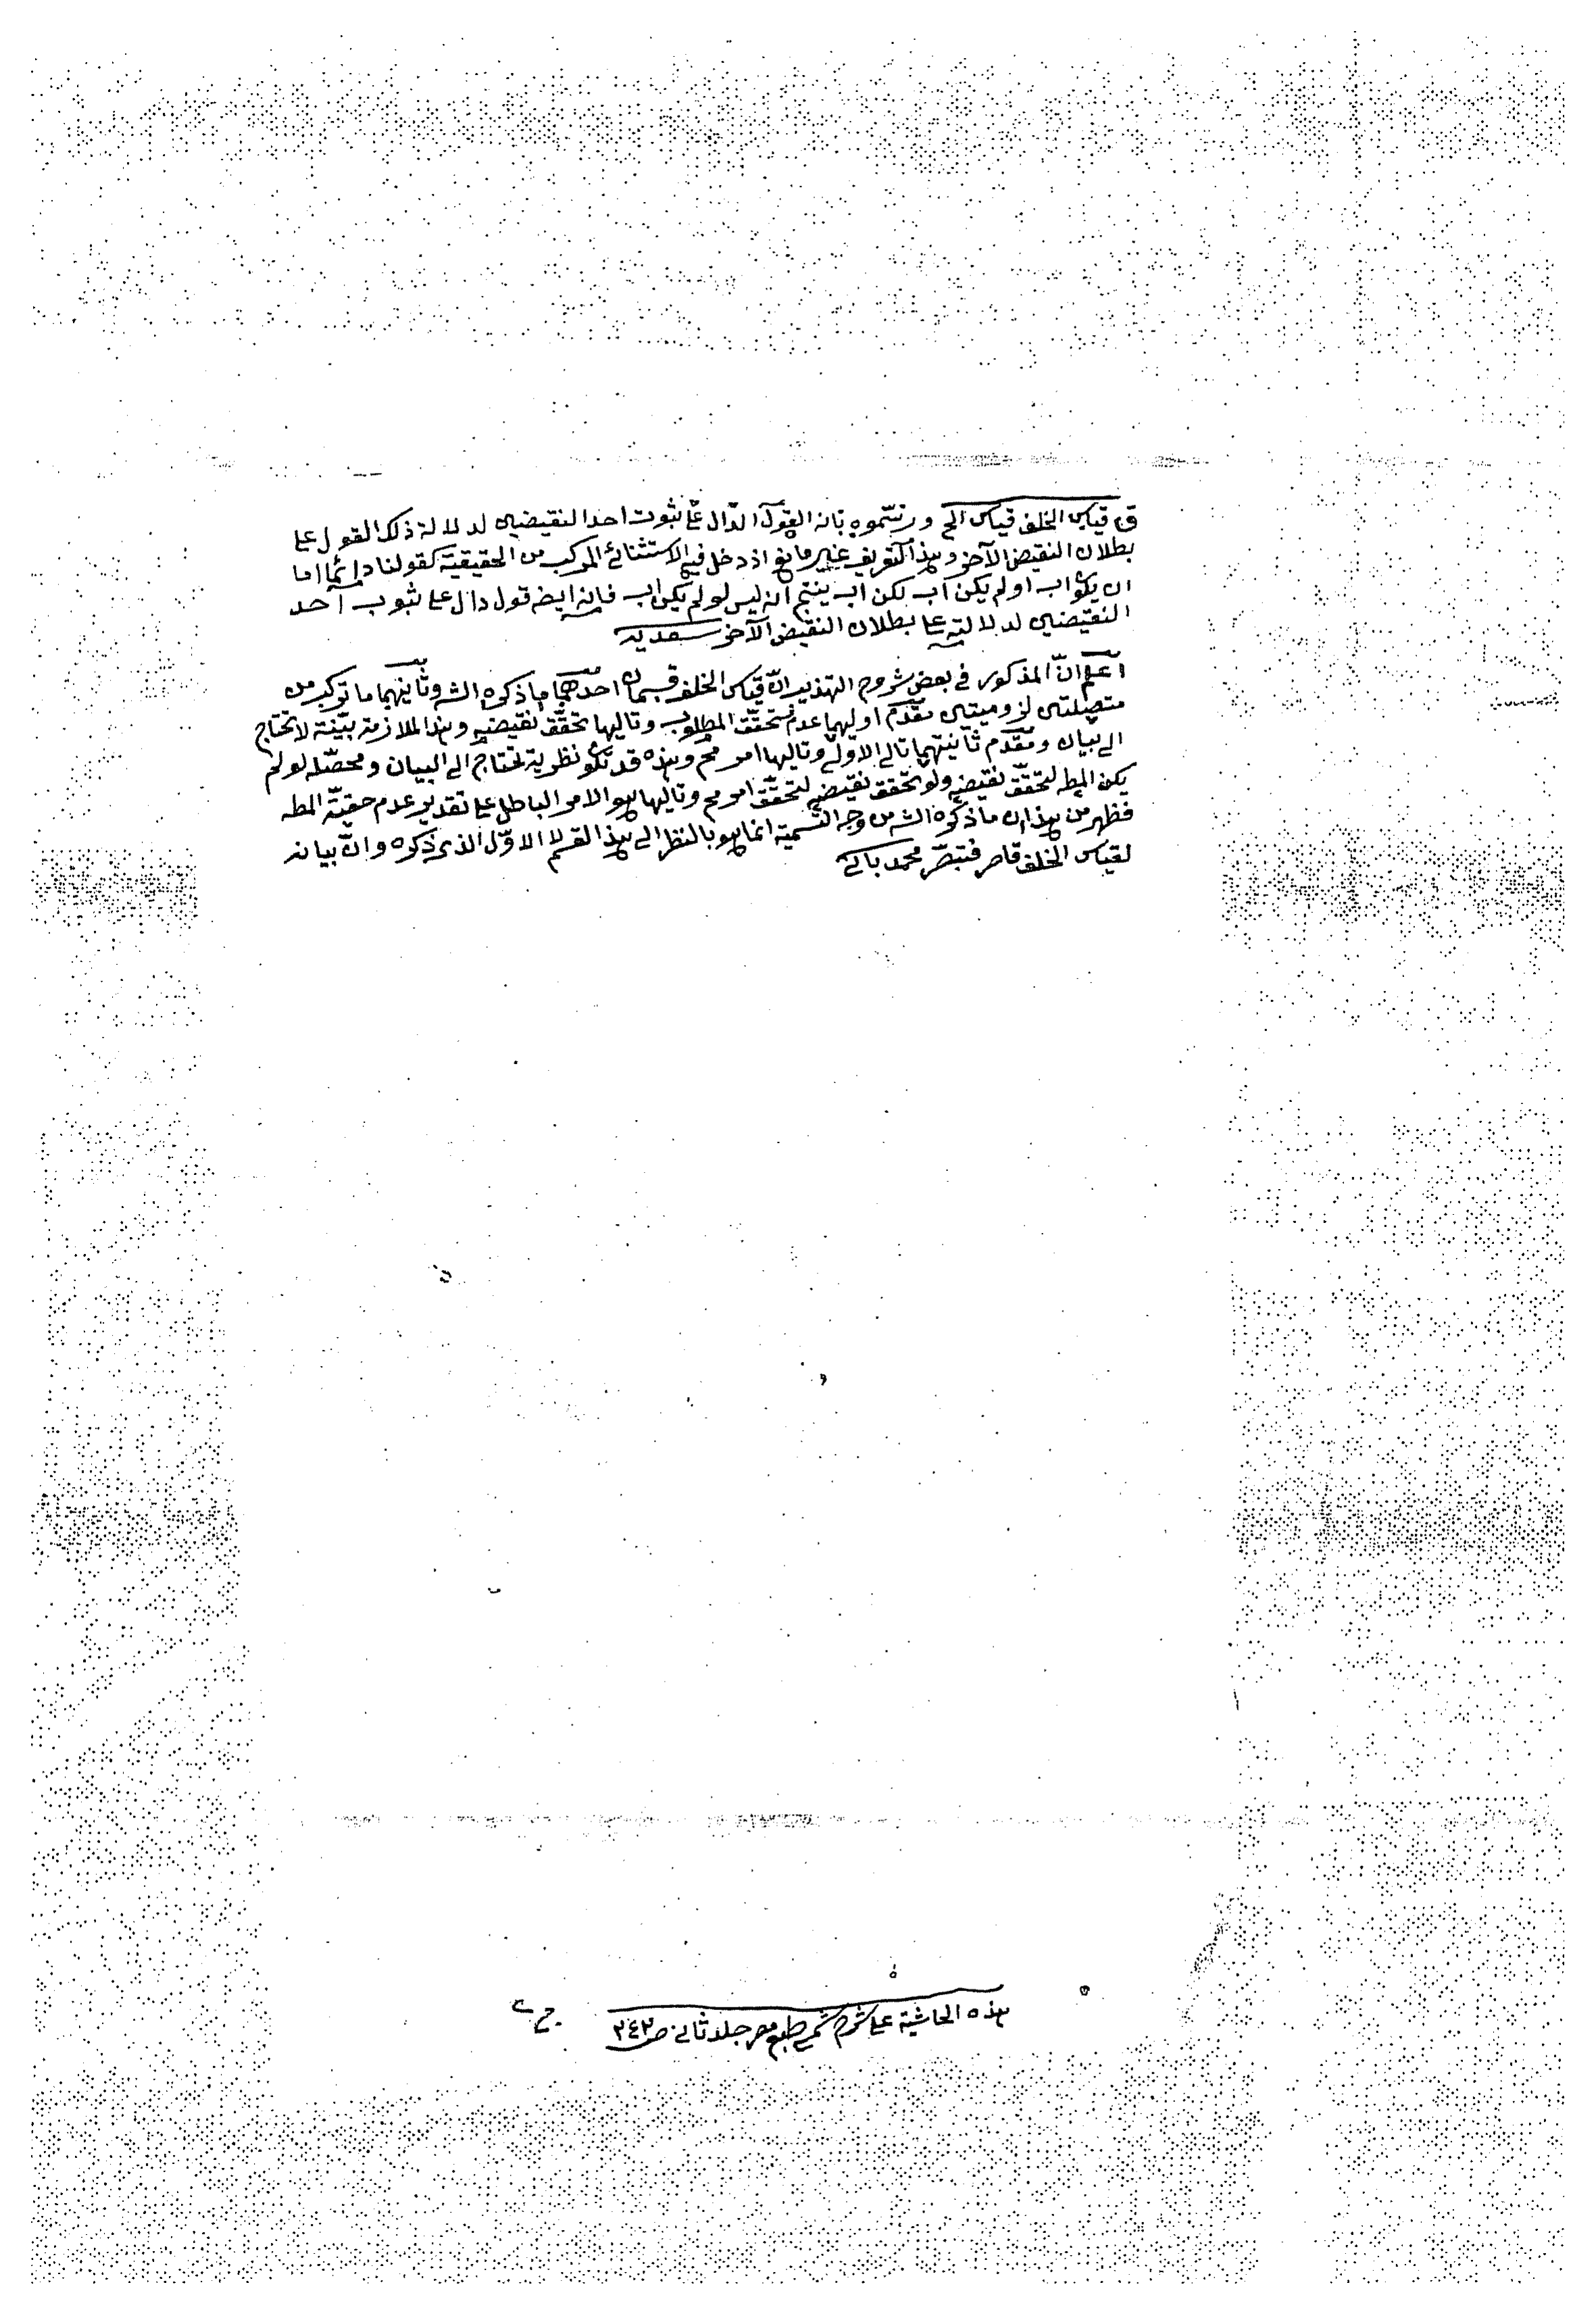 قوله قياس الخلف قياس الخ ورسّموه بانه القول الدّال على ثبوت احد النقيضين لدلالة ذلك القول على
بطلان النقيض الآخر وهذا التعريف غير مانع اذ دخل فيه الاستثنائي المركب من الحقيقية كقولنا دائما اما
ان يكون اب او لم يكن اب لكن اب ينتج انه ليس لو لم يكن اب فانه ايضه قول دال على ثبوت احد
النقيضين لدلالته على بطلان النقيض الآخر سعديه
اعلم انّ المذكور في بعض شروح التهذيب انّ قياس الخلف قسمان احدهما ما ذكره الشه وثانيهما ما تركب من
متصلتين لزوميتين مقدّم اوليهما عدم تحقّق المطلوب وتاليها تحقّق نقيضه وهذا الملازمة بيّنة لا تحتاج
الى بيان ومقدّم ثانيتهما تالي الاولى وتاليها امر مح وهذه قد تكون نظرية تحتاج الى البيان ومحصّله لو لم
يكن المطه لتحقّق نقيضه ولو تحقق نقيضه لتحقّق امر مح وتاليها هو الامر الباطل على تقدير عدم حقيّة المطه
فظهر من هذا ان ما ذكره الشه من وجه التسمية انما هو بالنظر الى هذا القسم لا الاوّل الذى ذكره وانّ بيانه
لقياس الخلف قاصر فتبصّر محمد باكى
هذه الحاشية على شرح شمسى طبع مصر جلد ثانى ص ٢٤٣